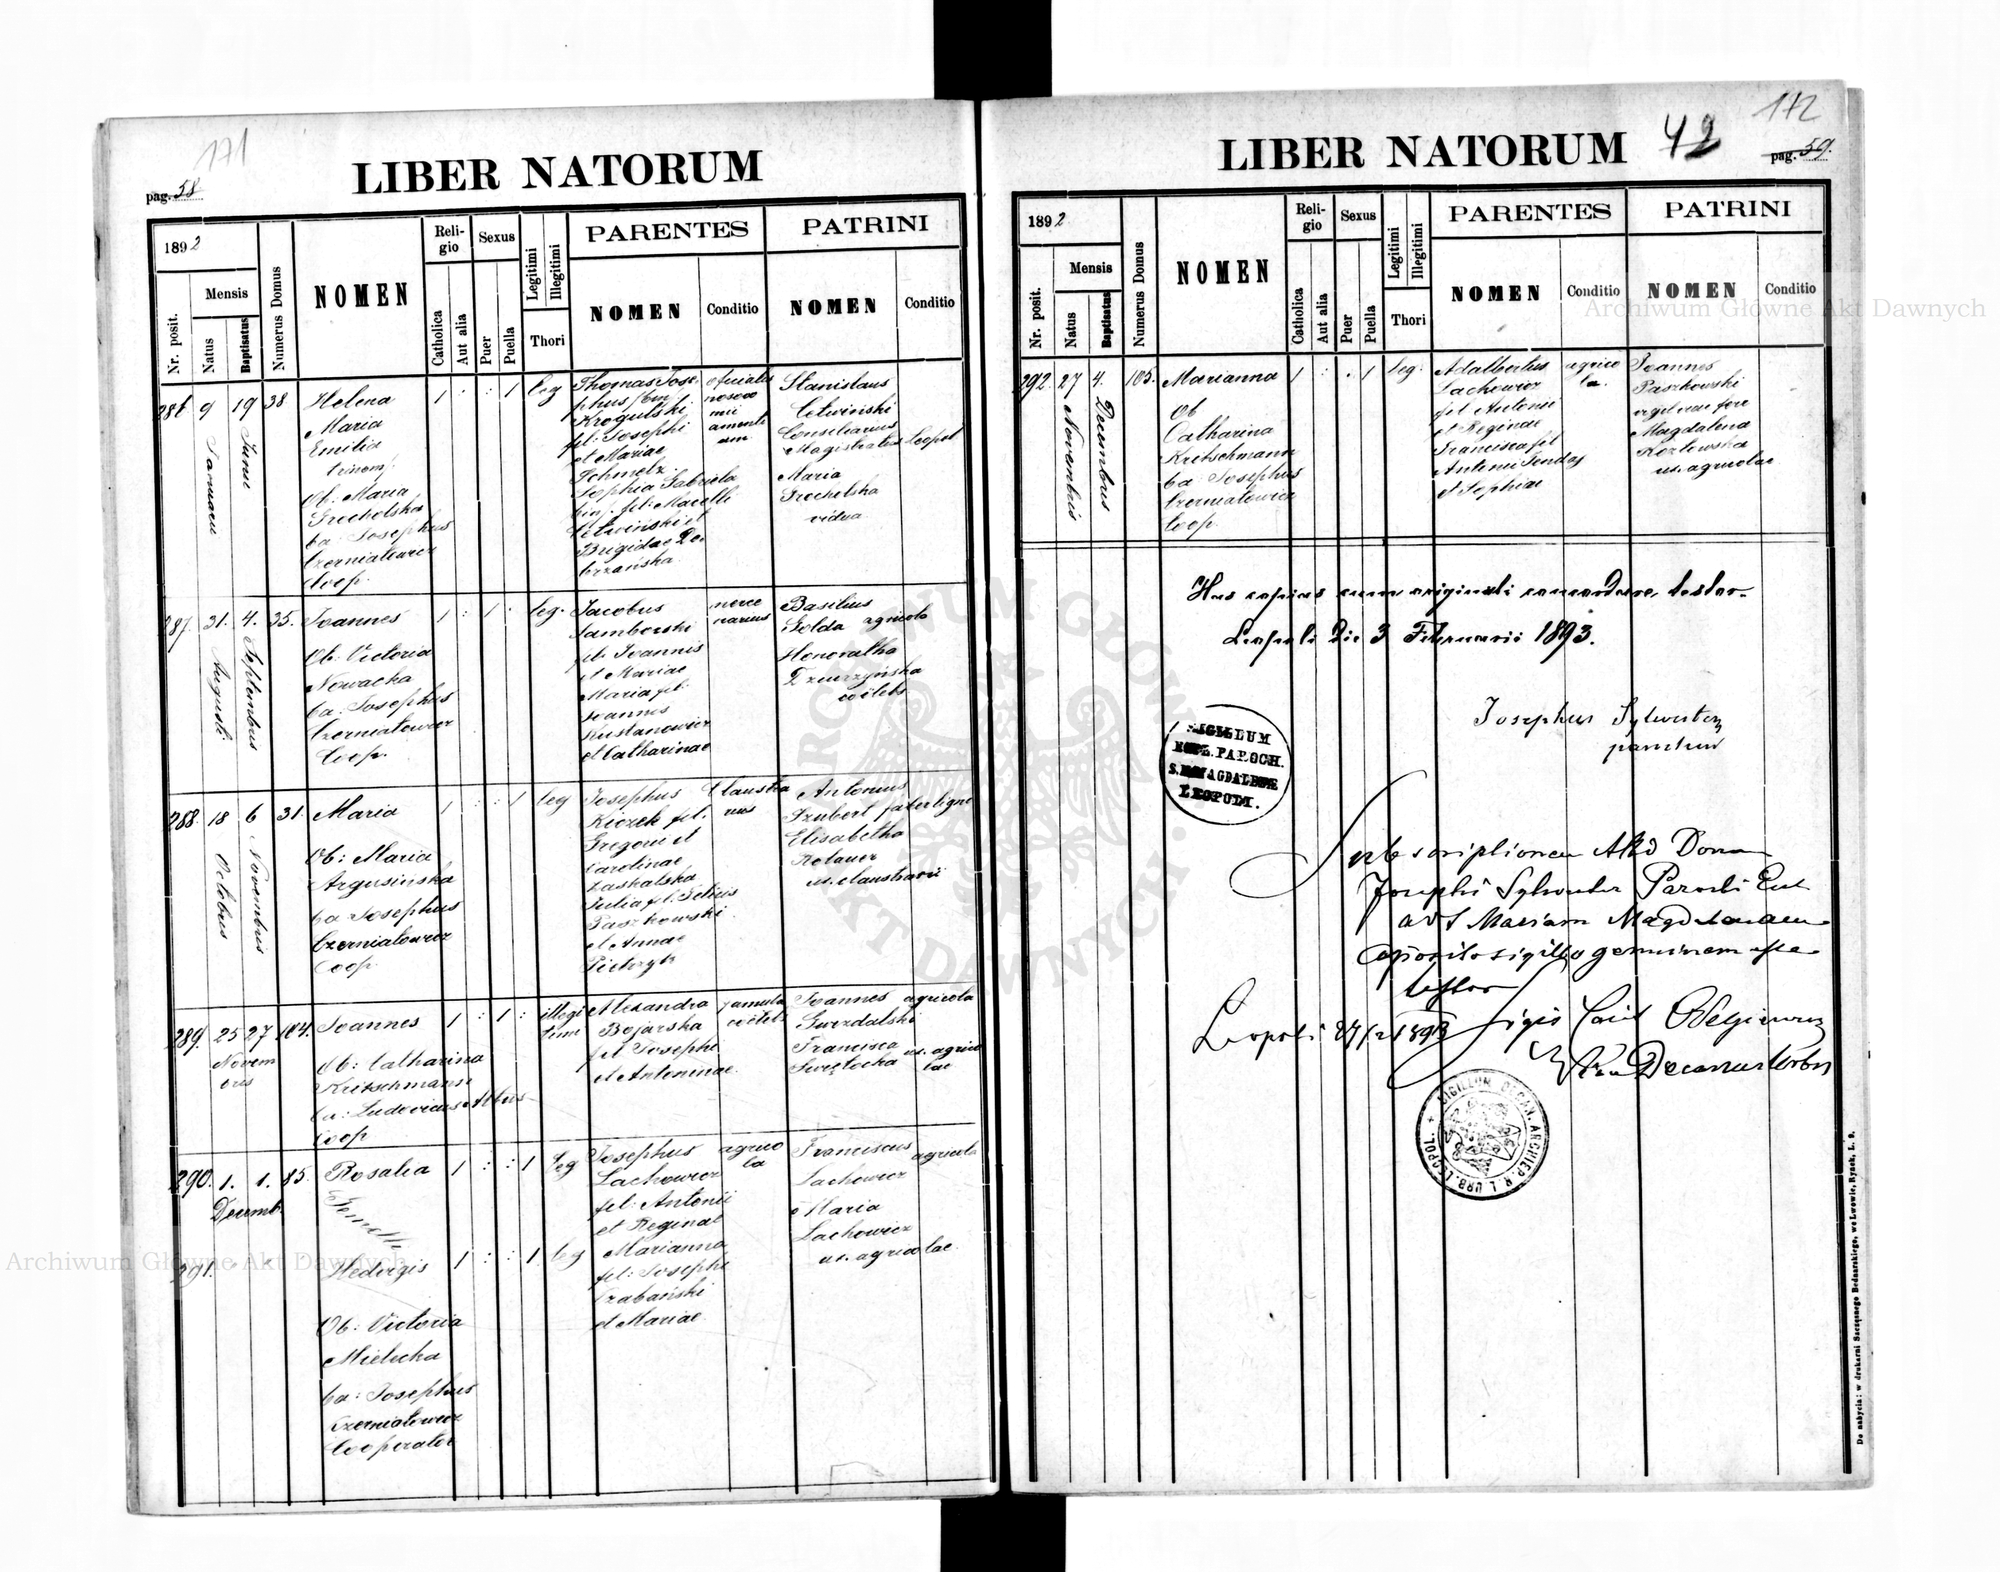 171
LIBER NATORUM
pag. 58
1892
Mensis
Nr. posit.
Natus
Baptisatus
Numerus Domus
NOMEN
Reli-
gio
Catholica
Aut alia
Sexus
Puer
Puella
Legitimi
Illegitimi
Thori
PARENTES
NOMEN
Conditio
PATRINI
NOMEN
Conditio
286 9 19 38
Januarii
Junii
Helena
Maria
Emilia
trinom.
Ob: Maria
Grocholska
ba: Josephus
Czerniatowicz
Coop.
1 : : 1 leg
Thomas Jose
phus
Krogulski
fil: Josephi
et Mariae
Schmelz
Sophia Gabriela
bin. fil: Marcelli
Cetwinski et
Brigidae
Stanislaus
Cetwinski
Consiliarius
Magistratus Leopol
Maria
Grocholska
vidua
287. 31. 4. 35.
Augusti
Septembris
Joannes
Ob: Victoria
Nowacka
ba: Josephus
Czerniatowicz
Coop.
1 : 1 . leg.
Jacobus
Samborski
fil: Joannis
et Mariae
Maria fil:
Joannes
Kustanowicz
et Catharinae
merce
narius
Basilius
Golda agricola
Honoratha
coelebs
288. 18 6 31.
Octobris
Novembris
Maria
Ob: Maria
Argusińska
ba Josephus
Czerniatowicz
Coop.
1 : : 1 leg
Josephus
Kiczek fil.
Gregorii et
Carolinae
Laskalska
Julia fil. Felicis
Paszkowski
et Annae
Pietrzyk
Claustra
rius
Antonius
Szubert faber ligna
Elisabetha
Rolauer
ux. claustrarii
289. 25 27 104.
Novem
bris
Joannes
Ob: Catharina
Kritschmann
ba: Ludovicus Albus
Coop
1 : 1 : illegi
timi
Alexandra
Bojarska
fil Josephi
et Antoninae.
famula
coelebs
Joannes agricola
Gwizdalski
Francisca ux. agrico
Swiętocka lae
290. 1. 1. 85.
Decemb.
Rosalia
Gemelli
1 : : 1 leg
Josephus
Lachowicz
fil: Antonii
et Reginae
Marianna
fil: Josephi
Czabański
et Mariae.
agrico
la
Franciscus agricola
Lachowicz
Maria
Lachowicz
ux. agricolae
291.
Hedvigis
1 : : 1. leg
Ob: Victoria
Mielecka
ba: Josephus
Czerniatowicz
Cooperator
172
LIBER NATORUM
42
pag. 59.
1892
Mensis
Nr. posit.
Natus
Baptisatus
Numerus Domus
NOMEN
Reli-
gio
Catholica
Aut alia
Sexus
Puer
Puella
Legitimi
Illegitimi
Thori
PARENTES
NOMEN
Conditio
PATRINI
NOMEN
Conditio
292. 27 4. 105.
Novembris
Decembris
Marianna
Ob
Catharina
Kritschmann
ba Josephus
Czerniatowicz
Coop.
1 : . 1 leg.
Adalbertus
Lachowicz
fil Antonii
et Reginae
Francisca fil
Antonii Sendaj
et Sophiae
agrico
la.
Joannes
Paszkowski
Magdalena
Kozłowska
ux. agricolae
Has copias cum originali concordare testor.
Leopoli die 3 Februarii 1893.
Josephus Sylwester
parochus
SIGILLUM
ECCL. PAROCH.
S. M. MAGDALENAE
LEOPOLI.
Subscriptionem
Josephi Sylwester Parochi Eccl
ad S Mariam Magdalenam
apposito sigillo genuinam esse
testor
Leopoli 27/2 1893
Decanus Urbis
SIGILLUM DECAN. ARCHIEP. R. L. URB. LEOPOL.
De nabycia: w drukarni Szczęsnego Bednarskiego, we Lwowie, Rynek, L. 9.
Archiwum Główne Akt Dawnych
Archiwum Główne Akt Dawnych
ARCHIWUM GŁÓWNE AKT DAWNYCH